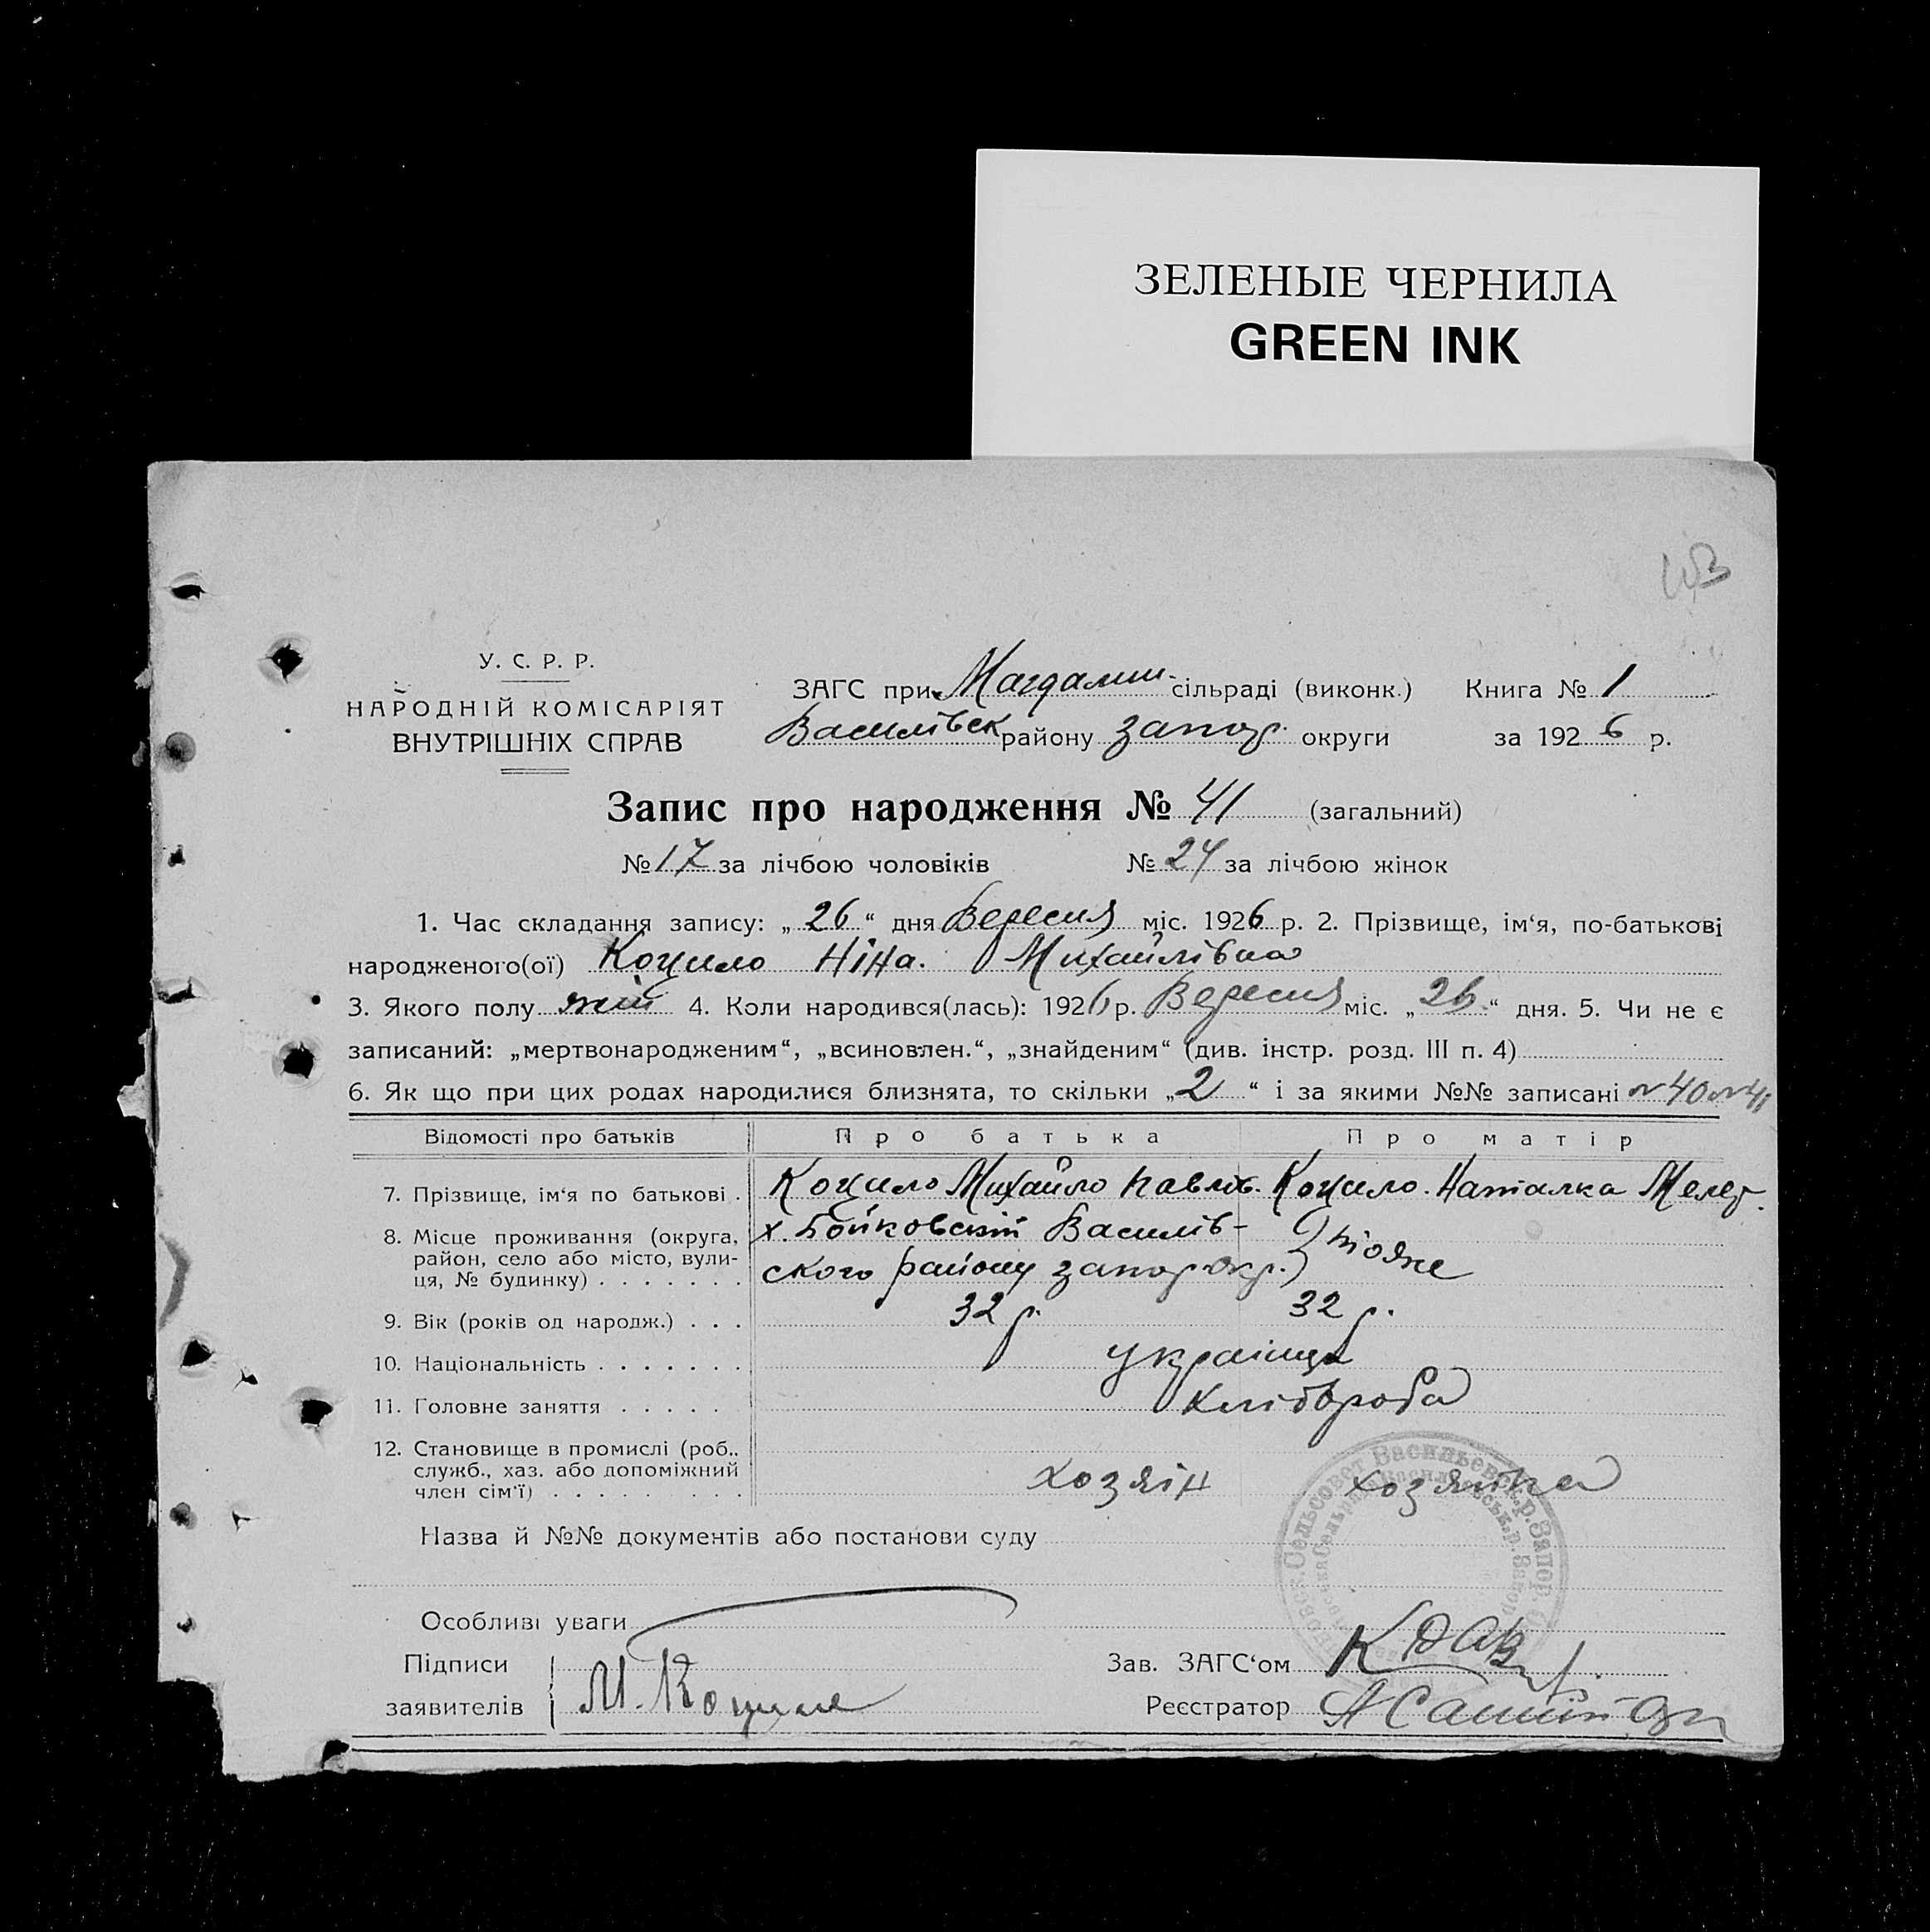 ЗЕЛЕНЫЕ ЧЕРНИЛА
GREEN INK
У. С. Р. Р.
НАРОДНІЙ КОМІСАРІЯТ
ВНУТРІШНІХ СПРАВ
ЗАГС при Магдалин- сільраді (виконк.) Книга № 1
Василівск району Запор. округи за 1926 р.
Запис про народження № 41 (загальний)
№ 17 за лічбою чоловіків № 24 за лічбою жінок
1. Час складання запису: „26“ дня Вересня міс. 1926 р. 2. Прізвище, ім‘я, по-батькові
народженого(ої) Коцило Ніна. Михайлівна
3. Якого полу жін 4. Коли народився(лась): 1926 р. Вересня міс. „26“ дня. 5. Чи не є
записаний: „мертвонародженим“, „всиновлен.“, „знайденим“ (див. інстр. розд. III п. 4)
6. Як що при цих родах народилися близнята, то скільки „2“ і за якими №№ записані №40 №41
Відомості про батьків Про батька Про матір
7. Прізвище, ім‘я по батькові . Коцило Михайло Павлов. Коцило. Наталка Мелет.
8. Місце проживання (округа, х. Бойковський Василів-
район, село або місто, вули- ского району запор окр.) тіояже
ця, № будинку) . . . . . . .
9. Вік (років од народж.) . . . 32 р. 32 р.
10. Національність . . . . . . . українця
11. Головне заняття . . . . . Хлібороба
12. Становище в промислі (роб.,
служб., хаз. або допоміжний хозяін хозяйка
член сім‘ї) . . . . . . . .
Назва й №№ документів або постанови суду
Особливі уваги
Підписи Зав. ЗАГС‘ом
заявителів М. Коцило Реєстратор
Сельсовет Васильевск.р.Запор.